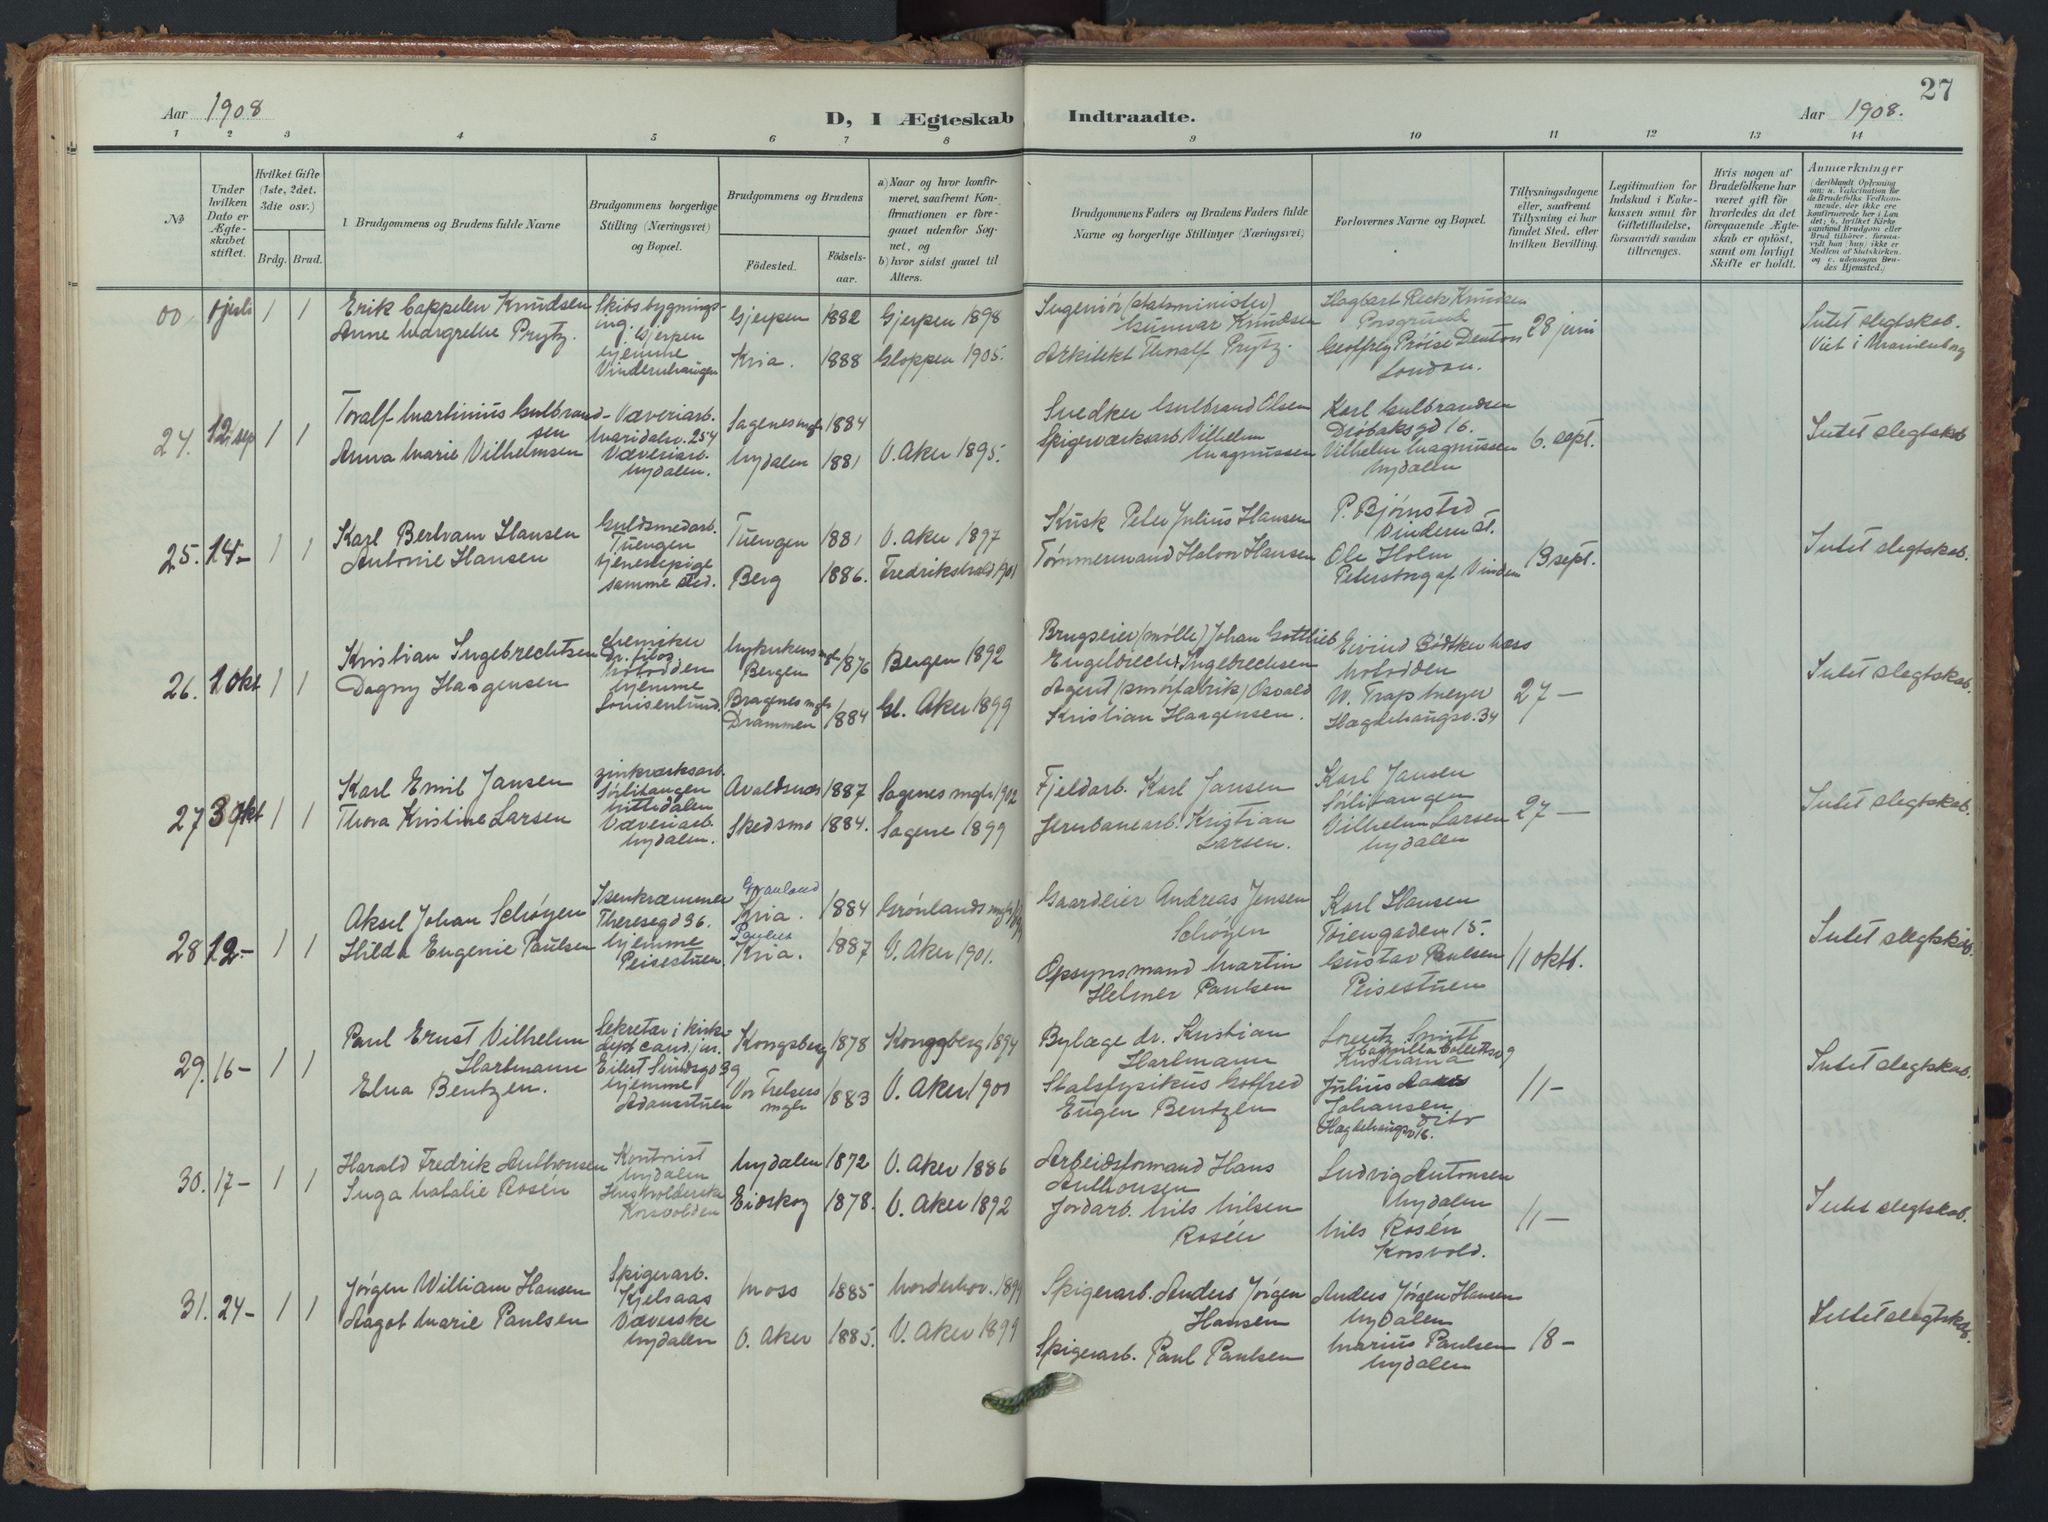 27
Aar 1908
D, I Ægteskab Indtraadte.
Aar 1908.
1 2 3 4 5 6 7 8 9 10 11 12 13 14
No
Under hvilken Dato er Ægteskabet stiftet.
Hvilket Gifte (1ste, 2det. 3die osv.)
Brdg. Brud.
1. Brudgommens og Brudens fulde Navne
Brudgommens borgerlige Stilling (Næringsvei) og Bopæl.
Brudgommens og Brudens
Fødested.
Fødselsaar.
a) Naar og hvor konfirmeret, saafremt Konfirmationen er foregaaet udenfor Sognet, og
b) hvor sidst gaaet til Alters.
Brudgommens Faders og Brudens Faders fulde Navne og borgerlige Stillinger (Næringsvei)
Forlovernes Navne og Bopæl.
Tillysningsdagene eller, saafremt Tillysning ei har fundet Sted. efter hvilken Bevilling.
Legitimation for Indskud i Enkekassen samt for Giftetilladelse, forsaavidt saadan tiltrænges.
Hvis nogen af Brudefolkene har været gift før hvorledes da det foregaaende Ægteskab er opløst, samt om lovligt Skifte er holdt.
Anmærkninger
(deriblandt Oplysning om: a. Vakcination for de Brudefolks Vedkommende, der ikke ere konfirmerede her i Landet; b. hvilket Kirkesamfund Brudgom eller Brud tilhører, forsaavidt han (hun) ikke er Medlem af Statskirken. og c. udensogns Brudes Hjemsted.)
00 juli 1 1
Erik Cappelen Knudsen
Anne Margrethe Prytz.
Skibsbygnings-
ing. Gjerpen
hjemme
Vindernhaugen
Gjerpen 1882 Gjerpen 1898
Kria. 1888 Gloppen 1905.
Ingeniør (statsminister)
Gunnar Knudsen
Arkitekt Thoralf Prytz.
Porsgrund
Geoffrey Denton
London.
28 juni
Intet slegtskab.
Viet i Uranienborg
24. 12 sep 1 1
Toralf Martinius Gulbrand-
sen
Anna Marie Vilhelmsen
Væveriarb.
Maridalsv. 254
Væveriarb.
Nydalen.
Sagenes mgh 1884
Nydalen 1881 V. Aker 1895.
Snedker Gulbrand Olsen
Spigerværksarb. Vilhelm
Magnussen
Karl Gulbrandsen
Drøbaksgd 16.
Vilhelm Magnussen
Nydalen
6. sept.
Intet slegtskab
25. 14- 1 1
Karl Bertram Hansen
Antonie Hansen
Guldsmedarb.
Tuengen
tjenestepige
samme sted.
Tuengen 1881 V. Aker 1897
Berg 1886. Fredrikshald 1901
Kusk Peter Julius Hansen
Tømmermand Halvor Hansen
P. Bjørnstad
Vindern st.
Ole Holm
Petersborg af Vindern
13 sept.
Intet slegtskab.
26. 1 okt 1 1
Kristian Ingebrechtsen
Dagny Haagensen
chemiker
Dr. filos
Notodden
hjemme
Louisenlund.
Nykirkens mgh
Bergen 1876 Bergen 1892
Bragenes mgh
Drammen 1884 Gl. Aker 1899
Brugseier (mølle) Johan Gottlieb
Engelbrecht Ingebrechsen
Agent (smørfabrik) Osvald
Kristian Haagensen.
Eivind Bødtker Næss
Notodden
W. Trap Meyer
Hægdehaugsv. 34
27 —
Intet slegtskab.
27 3 okt 1 1
Karl Emil Jansen
Thora Kristine Larsen
zinkværksarb.
Sørlitangen
Nittedalen
Væveriarb.
Nydalen.
Avaldsnes 1887 Sagenes mgh 1902
Skedsmo 1884. Sagene 1899
Fjeldarb. Karl Jansen
Jernbanearb. Kristian
Larsen.
Karl Jansen
Sørlitangen
Vilhelm Larsen
Nydalen
27 —
Intet slegtskab.
28 12- 1 1
Aksel Johan Schøyen
Hilda Eugenie Paulsen
Isenkræmmer
Theresegd 36.
hjemme
Peisestuen.
Grønland
Kria. 1884 Grønlands mgh
Paulus
Kria. 1887 V. Aker 1901.
Gaardeier Andreas Jensen
Schøyen
Opsynsmand Martin
Helmer Paulsen
Karl Hansen
Tøiengaden 15.
Gustav Paulsen
Peisestuen
11 oktb.
Intet slegtskab.
29. 16- 1 1
Paul Ernst Vilhelm
Hartmann
Elna Bentzen.
Sekretær i kirke-
dept cand. jur.
Eilert Sundsgd 39
hjemme
Adamstuen
Kongsberg 1878 Kongsberg 1894
Vor Frelsers
mgh 1883 V. Aker 1900
Bylæge dr. Kristian
Hartmann
Statsfysikus Gotfred
Eugen Bentzen
Lorentz Smitt
Camilla Colletsv 9
Kristiania
Julius
Johansen
Hægdehaugsv 16. dito
11-
Intet slegtskab.
30. 17- 1 1
Harald Fredrik Anthonsen
Inga Natalie Rosén
Kontorist
Nydalen
Husholderske
Korsvolden
Nydalen 1872 V. Aker 1886
Eidskog 1878. V. Aker 1892
Arbeidsformand Hans
Anthonsen
Jordarb. Nils Nilsen
Rosén
Ludvig Antonsen
Nydalen
Nils Rosén
Korsvold.
11-
Intet slegtskab.
31. 24- 1 1
Jørgen William Hansen
Aagot Marie Paulsen
Spigerarb.
Kjelsaas
Væverske
Nydalen
Moss 1885 Norderhov. 1899
V. Aker 1885. V. Aker 1899
Spigerarb. Anders Jørgen
Hansen
Spigerarb. Paul Paulsen
Anders Jørgen Hansen
Nydalen
Marius Paulsen
Nydalen
18-
Intet slegtskab.